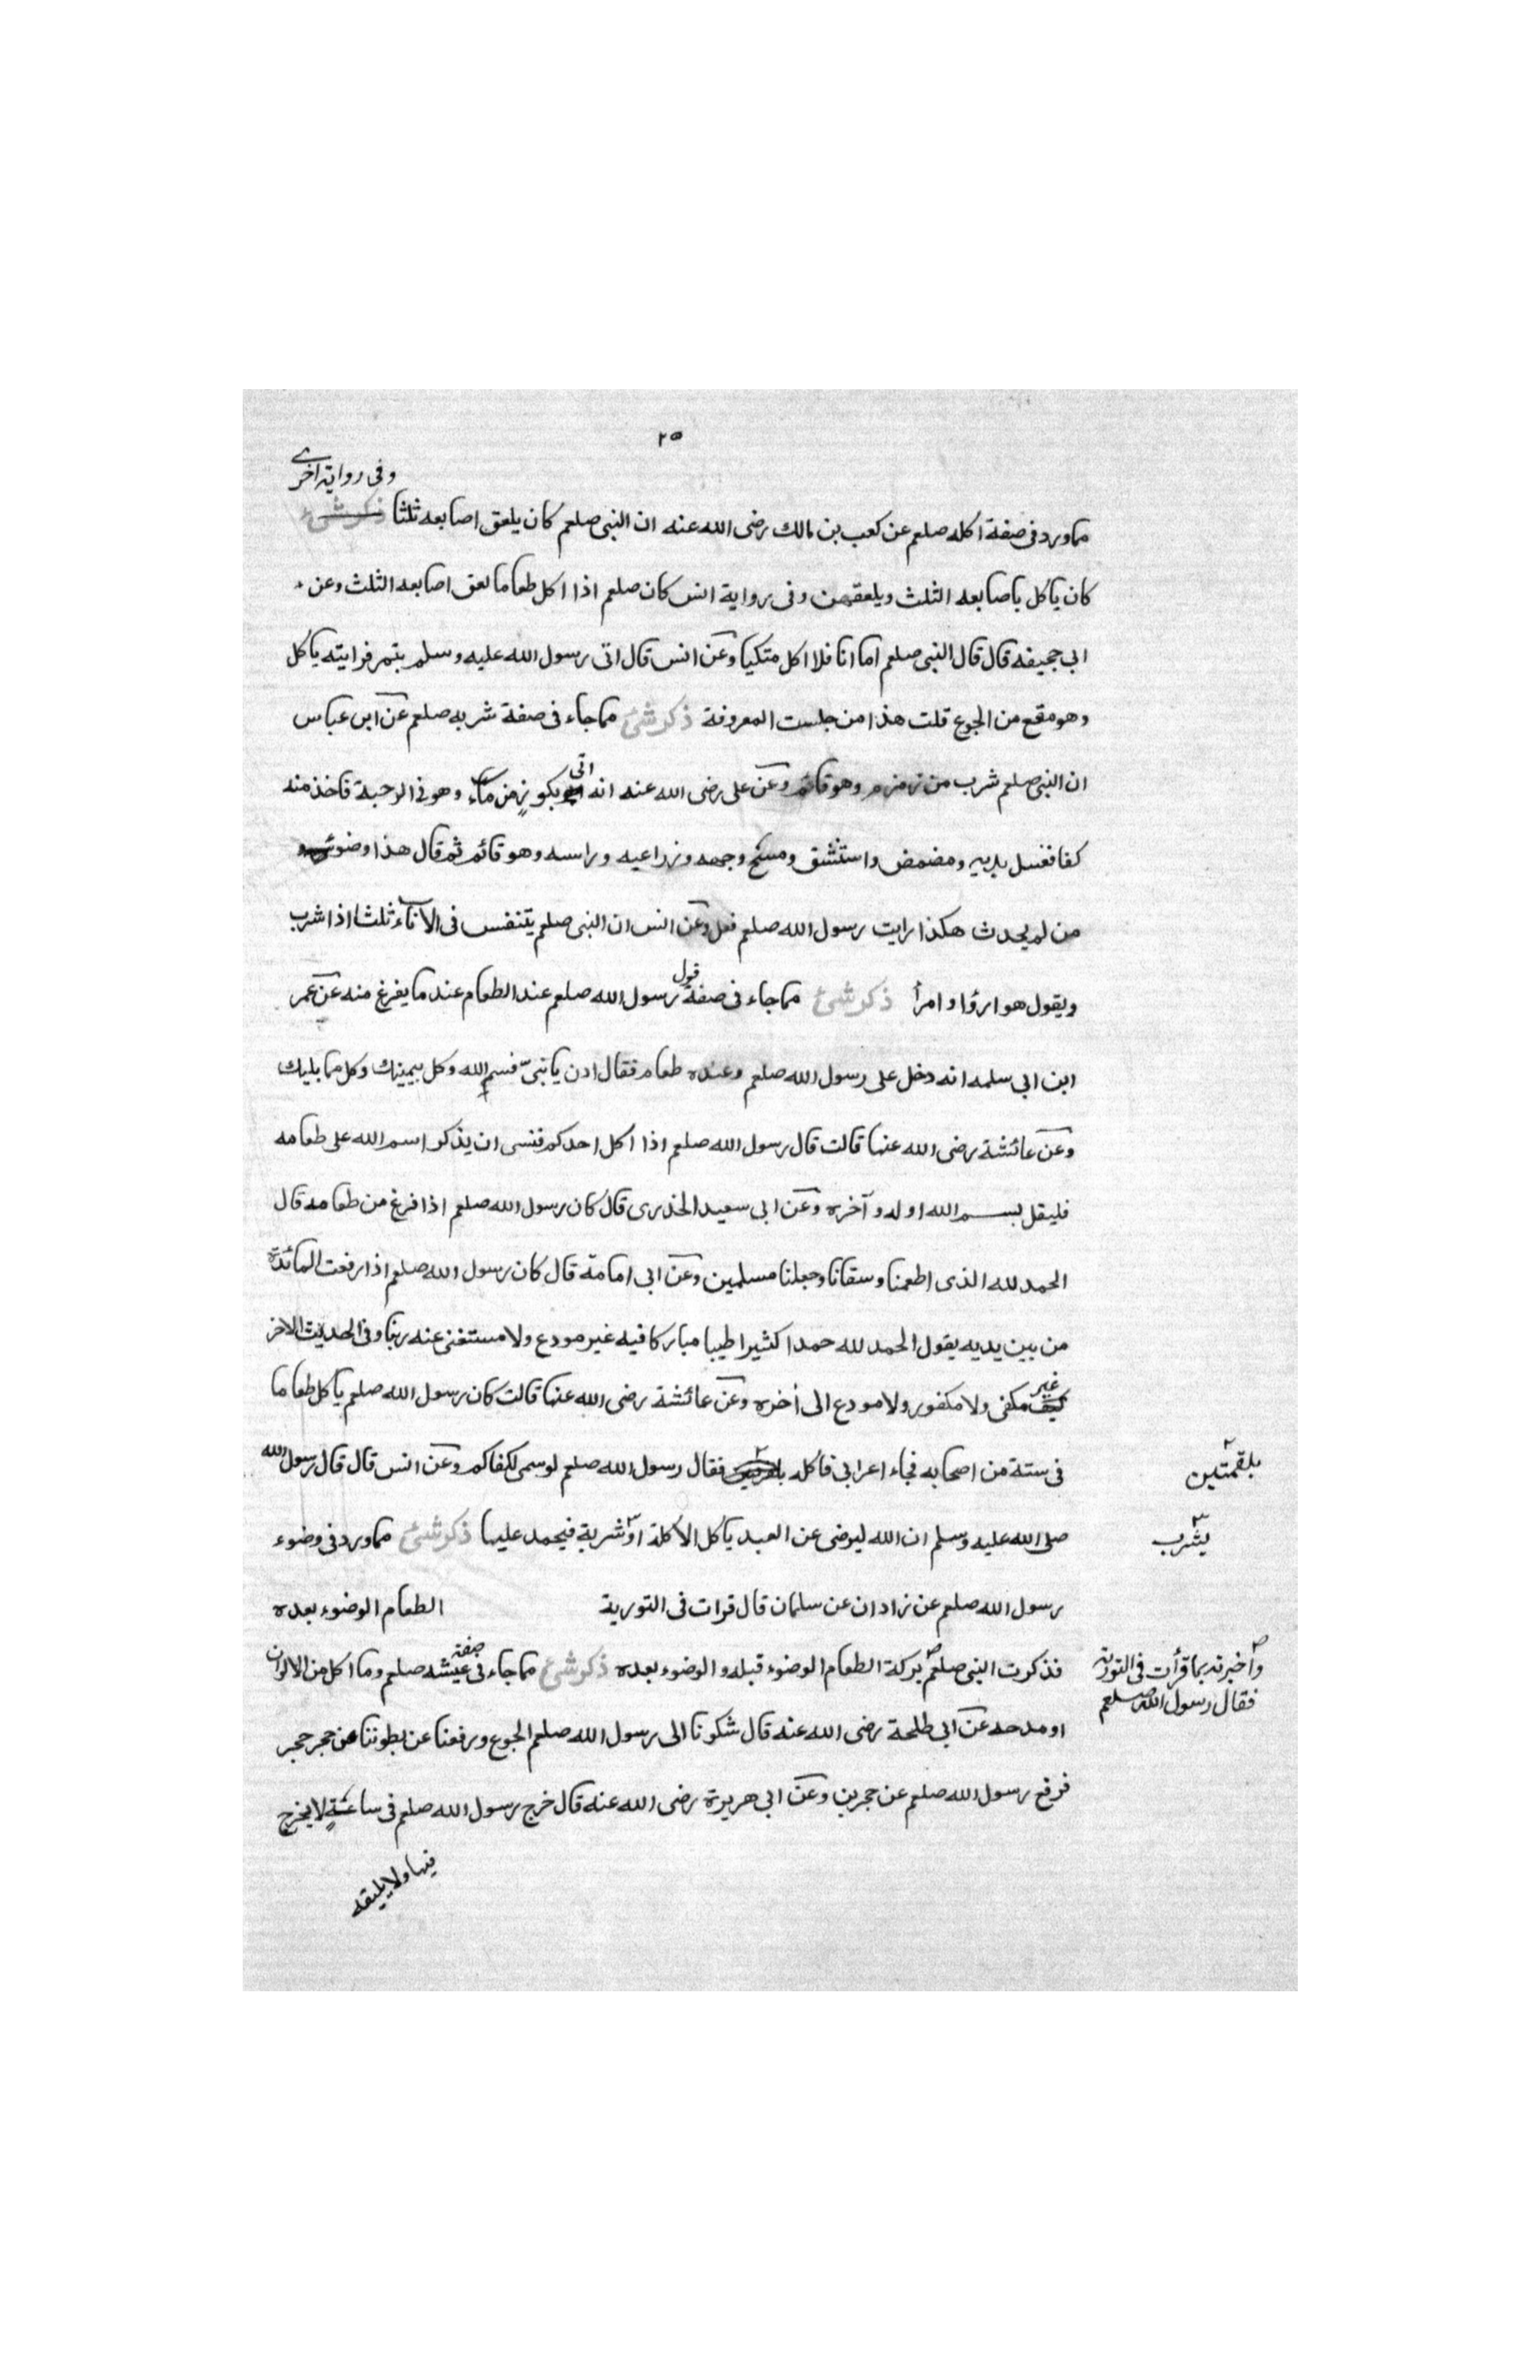 ٢٥
وفى رواية اخرى
مما ورد فى صفة اكله صلعم عن كعب بن مالك رضى الله عنه ان النبى صلعم كان يلعق اصابعه ثلثا ذكر شئ
كان ياكل باصابعه الثلث ويلعقهن وفى رواية انس كان صلعم اذا اكل طعاما لعق اصابعه الثلث وعن
ابى جحيفه قال قال النبى صلعم اما انا فلا اكل متكيا وعن انس قال اتى رسول الله عليه وسلم بتمر فرايته ياكل
وهو مقع من الجوع قلت هذا من جلست المعروفة ذكر شئ مما جاء فى صفة شربه صلعم عن ابن عباس
ان النبى صلعم شرب من زمزم وهو قائم وعن على رضى الله عنه انه اتى بكوز من ماء وهو فى الرحبة فاخذ منه
كفا فغسل يديه ومضمض واستنشق ومسح وجهه وذراعيه وراسه وهو قائم ثم قال هذا وضوء
من لم يحدث هكذا رايت رسول الله صلعم فعل وعن انس ان النبى صلعم يتنفس فى الاناء ثلثا اذا شرب
ويقول هو ارؤا وامرأ ذكر شئ مما جاء فى صفة قول رسول الله صلعم عند الطعام عند ما يفرغ منه عن عمر
ابن ابى سلمه انه دخل على رسول الله صلعم وعنده طعام فقال ادن يا نبىّ فسم الله وكل بيمينك وكل مما يليك
وعن عائشة رضى الله عنها قالت قال رسول الله صلعم اذا اكل احدكم فنسى ان يذكر اسم الله على طعامه
فليقل بسم الله اوله وآخره وعن ابى سعيد الخدرى قال كان رسول الله صلعم اذا فرغ من طعامه قال
الحمد لله الذى اطعمنا وسقانا وجعلنا مسلمين وعن ابى امامة قال كان رسول الله صلعم اذا رفعت المائدة
من بين يديه يقول الحمد لله حمدا كثيرا طيبا مباركا فيه غير مودع ولا مستغنى عنه ربنا وفى الحديث الاخر
غير مكفى ولا مكفور ولا مودع الى أخره وعن عائشة رضى الله عنها قالت كان رسول الله صلعم ياكل طعاما
فى ستة من اصحابه فجاء اعرابى فاكله فقال رسول الله صلعم لو سمى لكفاكم وعن انس قال قال رسول الله
بلقمتين
صلى الله عليه وسلم ان الله ليرضى عن العبد ياكل الأكلة او شربة فيحمد عليها ذكر شئ مما ورد فى وضوء
يشرب
رسول الله صلعم عن زادان عن سلمان قال قرات فى التورية الطعام الوضوء بعده
فذكرت النبى صلعم بركة الطعام الوضوء قبله والوضوء بعده ذكر شئ مما جاء فى صفة عيشه صلعم وما اكل من الالوان
واخبرته بما قرأت فى التورته
فقال رسول الله صلعم
او مدحه عن ابى طلحة رضى الله عنه قال شكونا الى رسول الله صلعم الجوع ورفعنا عن بطوننا عن حجر حجر
فرفع رسول الله صلعم عن حجرين وعن ابى هريرة رضى الله عنه قال خرج رسول الله صلعم فى ساعةٍ لا يخرج
فيها ولا يلقه